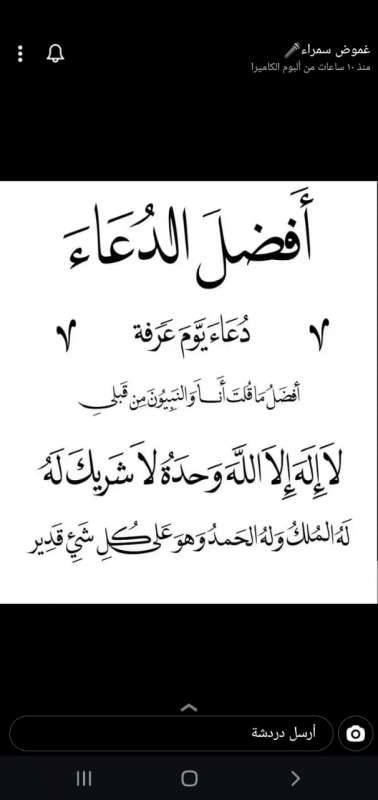 غموض سمراء🎤
منذ ١٠ ساعات من ألبوم الكاميرا
أَفضلَ الدُعَاءَ
دُعَاءَ يَّومَ عَرَفة
أفضَلُ مَا قُلتَ أَنَا وَالنَبِيُونَ مِن قَبلِي
لاَ إِلَهَ إِلاَ اللَّهَ وَحدَهُ لاَ شَريكَ لَهُ
لَهُ المُلكُ وَلهُ الحَمدُ وَهوَ عَلى كُلِ شَيْءٍ قَدِير
أرسل دردشة